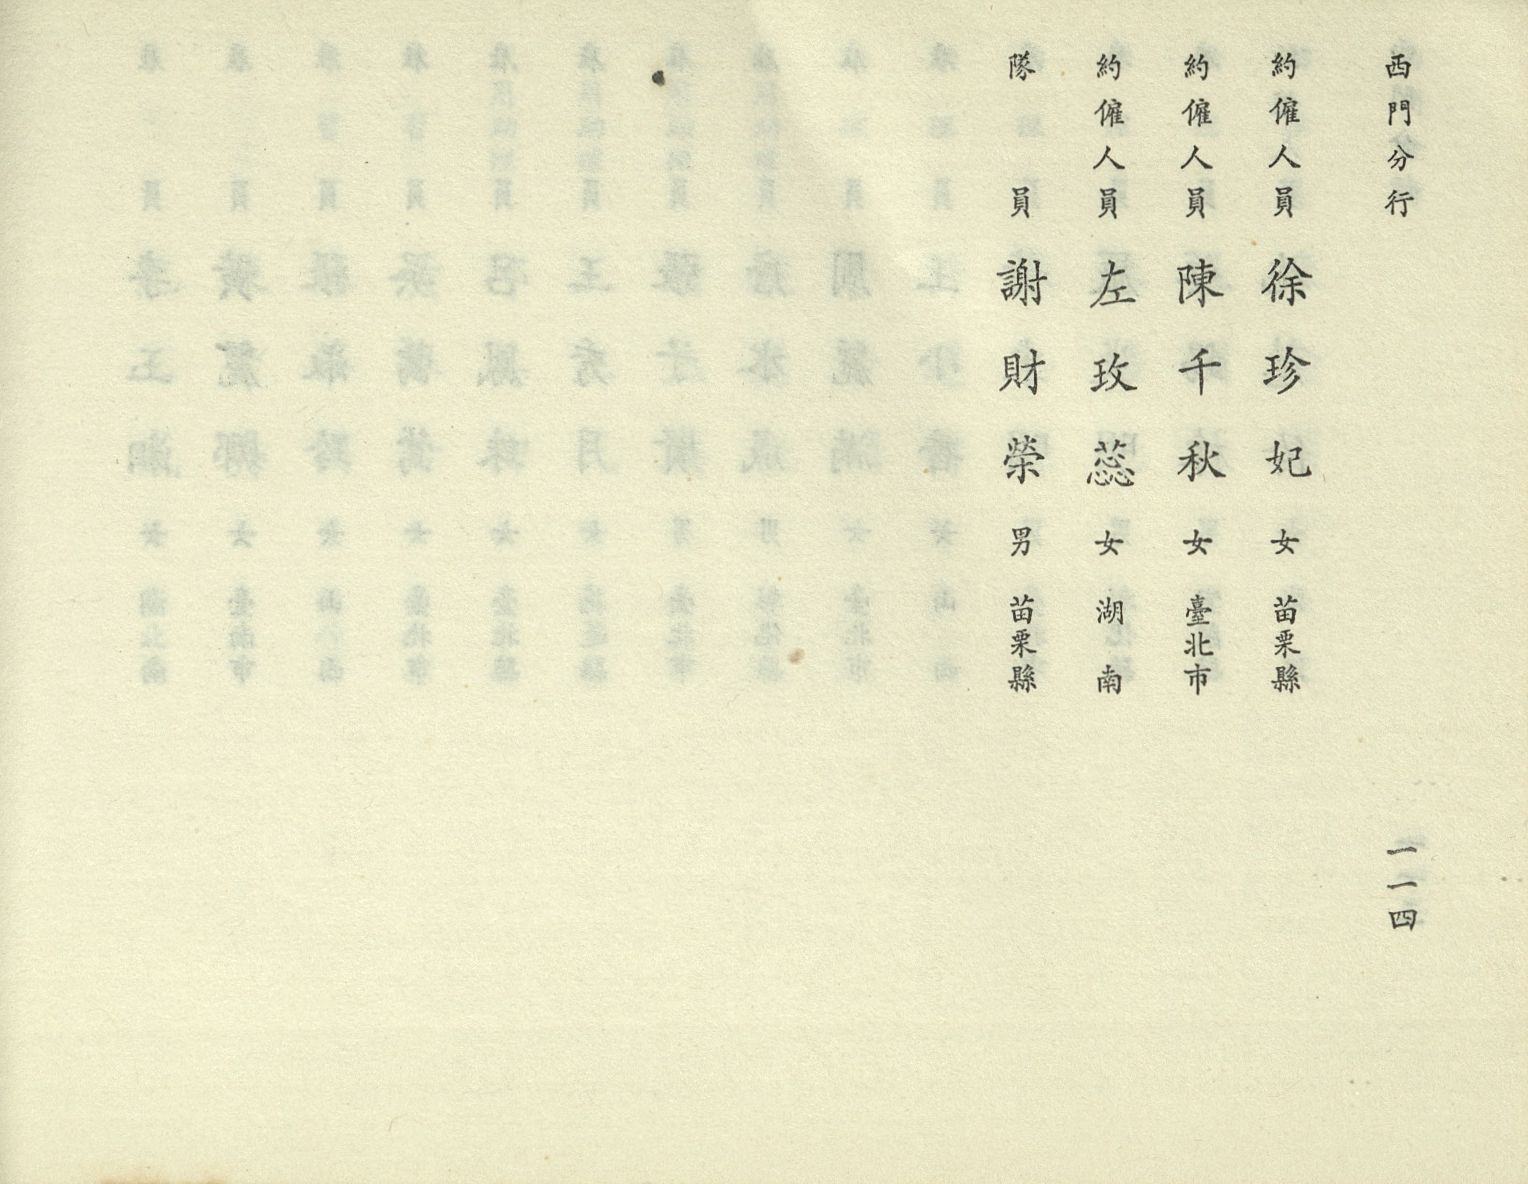 西門分行
一一四
約僱人員 徐珍妃 女 苗栗縣
約僱人員 陳千秋 女 臺北市
約僱人員 左玫蕊 女 湖南
隊員 謝財榮 男 苗栗縣